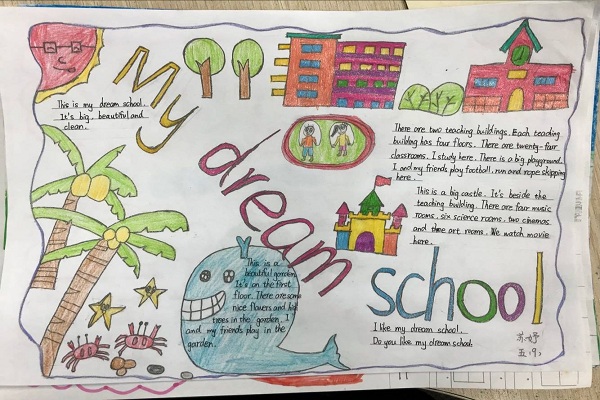 My dream school
This is my dream school.
It's big, beautiful and
clean.
There are two teaching buildings. Each teaching
building has four floors. There are twenty-four
classrooms. I study here. There is a big playground.
I and my friends play football, run and rope skipping
here.
This is a big castle. It's beside the
teaching building. There are four music
rooms, six science rooms, two cinemas
and three art rooms. We watch movie
here.
This is a
beautiful garden.
It's on the first
floor. There are some
nice flowers and big
trees in the garden. I
and my friends play in the
garden.
I like my dream school.
Do you like my dream school?